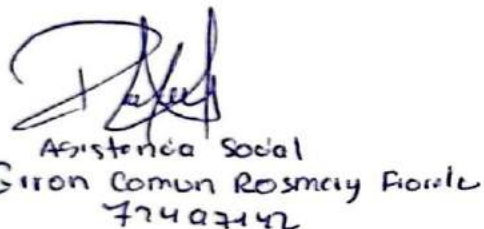 Asistencia Social
Giron Comun Rosmery Fiorela
72407142